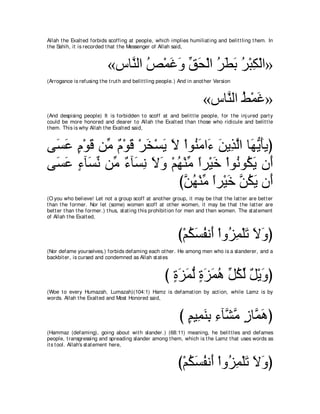 Allah the Exalted forbids scoffing at people, which implies humiliating and belittling them. In
the Sahih, it is recorded that the Messenger of Allah said,
«الْكِبْرُ بَطَرُ الْحَقِّ وَغَمْصُ النَّاسِ»
(Arrogance is refusing the truth and belittling people.) And in another Version
«غَمْطُ النَّاسِ»
(And despising people) It is forbidden to scoff at and belittle people, for the injured party
could be more honored and dearer to Allah the Exalted than those who ridicule and belittle
them. This is why Allah the Exalted said,
(يأَيُّهَا الَّذِينَ ءَامَنُواْ لاَ يَسْخَرْ قَوْمٌ مِّن قَوْمٍ عَسَى
أَن يَكُونُواْ خَيْراً مِّنْهُمْ وَلاَ نِسَآءٌ مِّن نِّسَآءٍ عَسَى
أَن يَكُنَّ خَيْراً مِّنْهُنَّ)
(O you who believe! Let not a group scoff at another group, it may be that the latter are better
than the former. Nor let (some) women scoff at other women, it may be that the latter are
better than the former.) thus, stating this prohibition for men and then women. The statement
of Allah the Exalted,
(وَلاَ تَلْمِزُواْ أَنفُسَكُمْ)
(Nor defame yourselves,) forbids defaming each other. He among men who is a slanderer, and a
backbiter, is cursed and condemned as Allah states
(وَيْلٌ لِّكُلِّ هُمَزَةٍ لُّمَزَةٍ )
(Woe to every Humazah, Lumazah)(104:1) Hamz is defamation by action, while Lamz is by
words. Allah the Exalted and Most Honored said,
(هَمَّازٍ مَّشَّآءِ بِنَمِيمٍ )
(Hammaz (defaming), going about with slander.) (68:11) meaning, he belittles and defames
people, transgressing and spreading slander among them, which is the Lamz that uses words as
its tool. Allah's statement here,
(وَلاَ تَلْمِزُواْ أَنفُسَكُمْ)